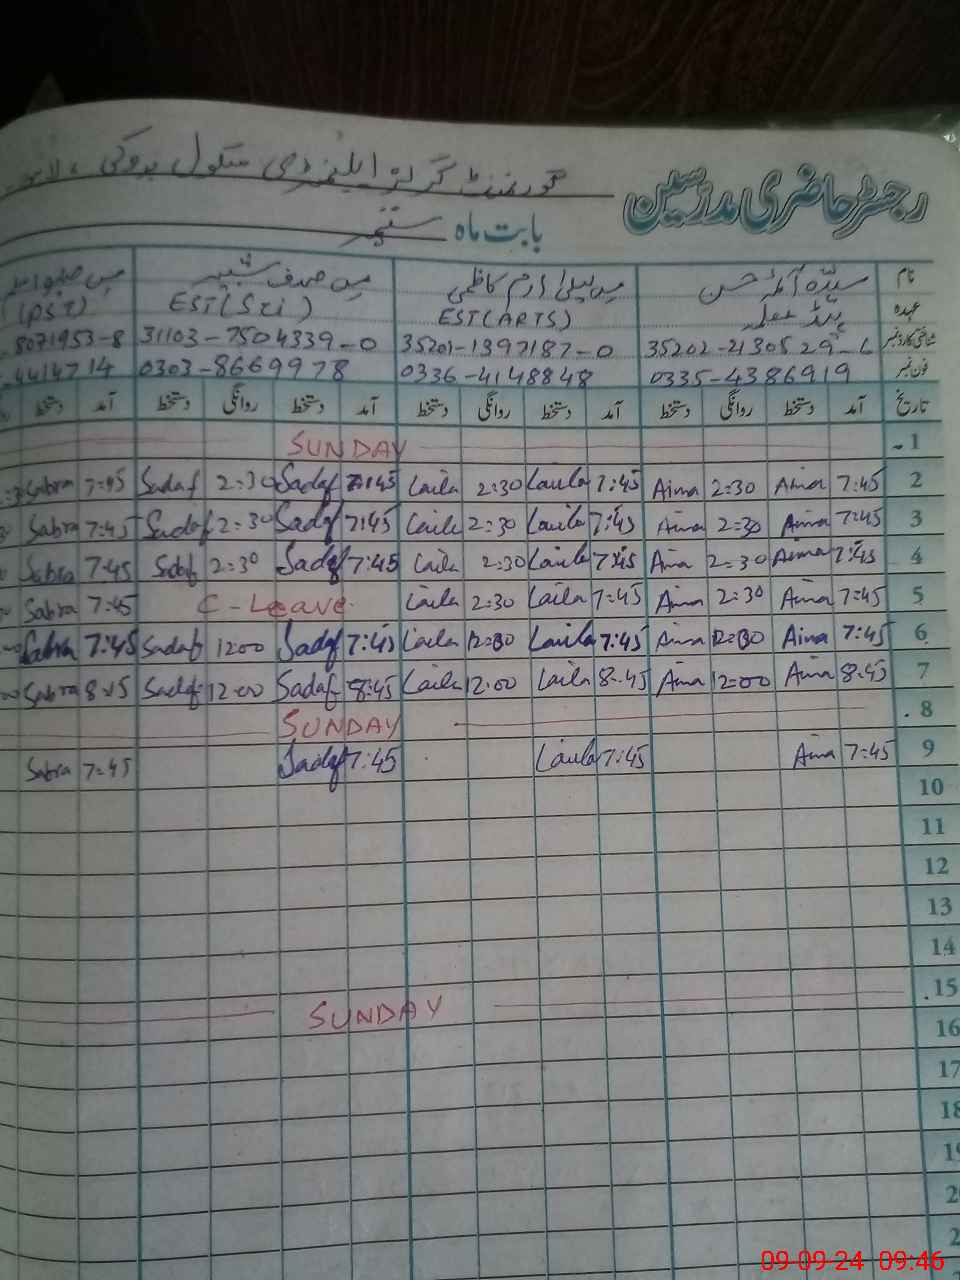 رجسٹر حاضری مدرسین گورنمنٹ گرلز ایلیمنٹری سکول
بابت ماہ ستمبر
نام سیدہ آئمہ حسن مس لیلیٰ ارم کاظمی مس صدف شبیر مس
عہدہ ہیڈ معلمہ EST(ARTS) EST(Sci) (PST)
شناختی کارڈ نمبر 35202-2130529-6 35201-1397187-0 31103-7504339-0 8071953-8
فون نمبر 0335-4386919 0336-4148848 0303-8669978 4414714
تاریخ آمد دستخط روانگی دستخط آمد دستخط روانگی دستخط آمد دستخط روانگی دستخط آمد دستخط
1 SUNDAY
2 7:45 Aima 2:30 Aima 7:45 Laila 2:30 Laila 7:45 Sadaf 2:30 Sadaf 7:45 Sabra
3 7:45 Aima 2:30 Aima 7:45 Laila 2:30 Laila 7:45 Sadaf 2:30 Sadaf 7:45 Sabra
4 7:45 Aima 2:30 Aima 7:45 Laila 2:30 Laila 7:45 Sadaf 2:30 Sadaf 7:45 Sabra
5 7:45 Aima 2:30 Aima 7:45 Laila 2:30 Laila C-Leave 7:45 Sabra
6 7:45 Aima 12:30 Aima 7:45 Laila 12:30 Laila 7:45 Sadaf 12:00 Sadaf 7:45 Sabra
7 8:45 Aima 12:00 Aima 8:45 Laila 12:00 Laila 8:45 Sadaf 12:00 Sadaf 8:45 Sabra
8 SUNDAY
9 7:45 Aima 7:45 Laila 7:45 Sadaf 7:45 Sabra
10
11
12
13
14
15 SUNDAY
16
17
18
19
09-09-24 09:46